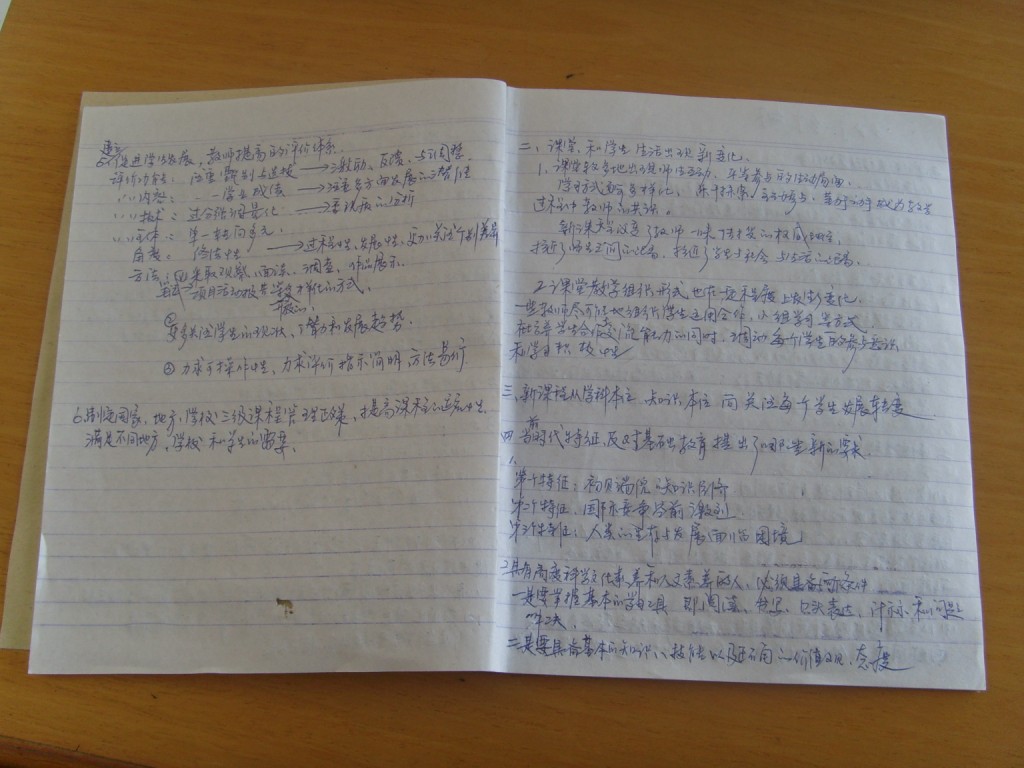 建立
5.促进学生发展,教师提高的评价体系
评价功能: 注重甄别与选拔 → 激励、反馈、与调整
〃〃内容: 学业成绩 → 注重多方面发展的潜能
〃〃技术: 过分强调量化 → 重视质的分析
〃〃主体: 单一转向多元,
角度: 终结性 → 过程性,发展性,更加关注个别差异
方法:①采取观察、面谈、调查、作品展示、
项目活动报告等多样化的方式,
开放的,
②更多关注学生的现状、潜力和发展趋势.
③力求可操作性,力求评价指标简明,方法易行
6.制定国家,地方,学校三级课程管理政策,提高课程的适应性,
满足不同地方,学校和学生的需要,
二、课堂,和学生生活出现新变化.
1.课堂较多地出现师生互动、平等参与的生动局面.
学习方式多样化,
过程中教师的共识。
新课程
拉近了师生之间的距离,拉近了学生与社会与生活的距离.
2.课堂教学组织形式也在一定程度上发生变化.
一些教师尽可能地组织学生运用合作,小组学习等方式.
在培养学生合作与交流能力的同时,调动每个学生的参与意识
和学习积极性
三、新课程从学科本位、知识本位向关注每个学生发展转变
前
四 当时代特征,及对基础教育提出了哪些新的要求.
1、
第一个特征:初见端倪的知识经济
第二个特征,国际竞争空前激烈.
第三个特征:人类的生存与发展面临困境
2.具有高度科学文化素养和人文素养的人,必须具备两个条件
一是要掌握基本的学习工具 即阅读、书写、口头表达,计算和问题
解决
二是要具备基本的知识、技能以及正确的价值观、态度